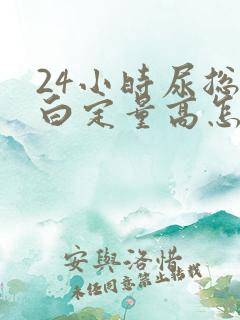 24小时尿总
白定量高怎
安與洛惜
未经同意禁止转载